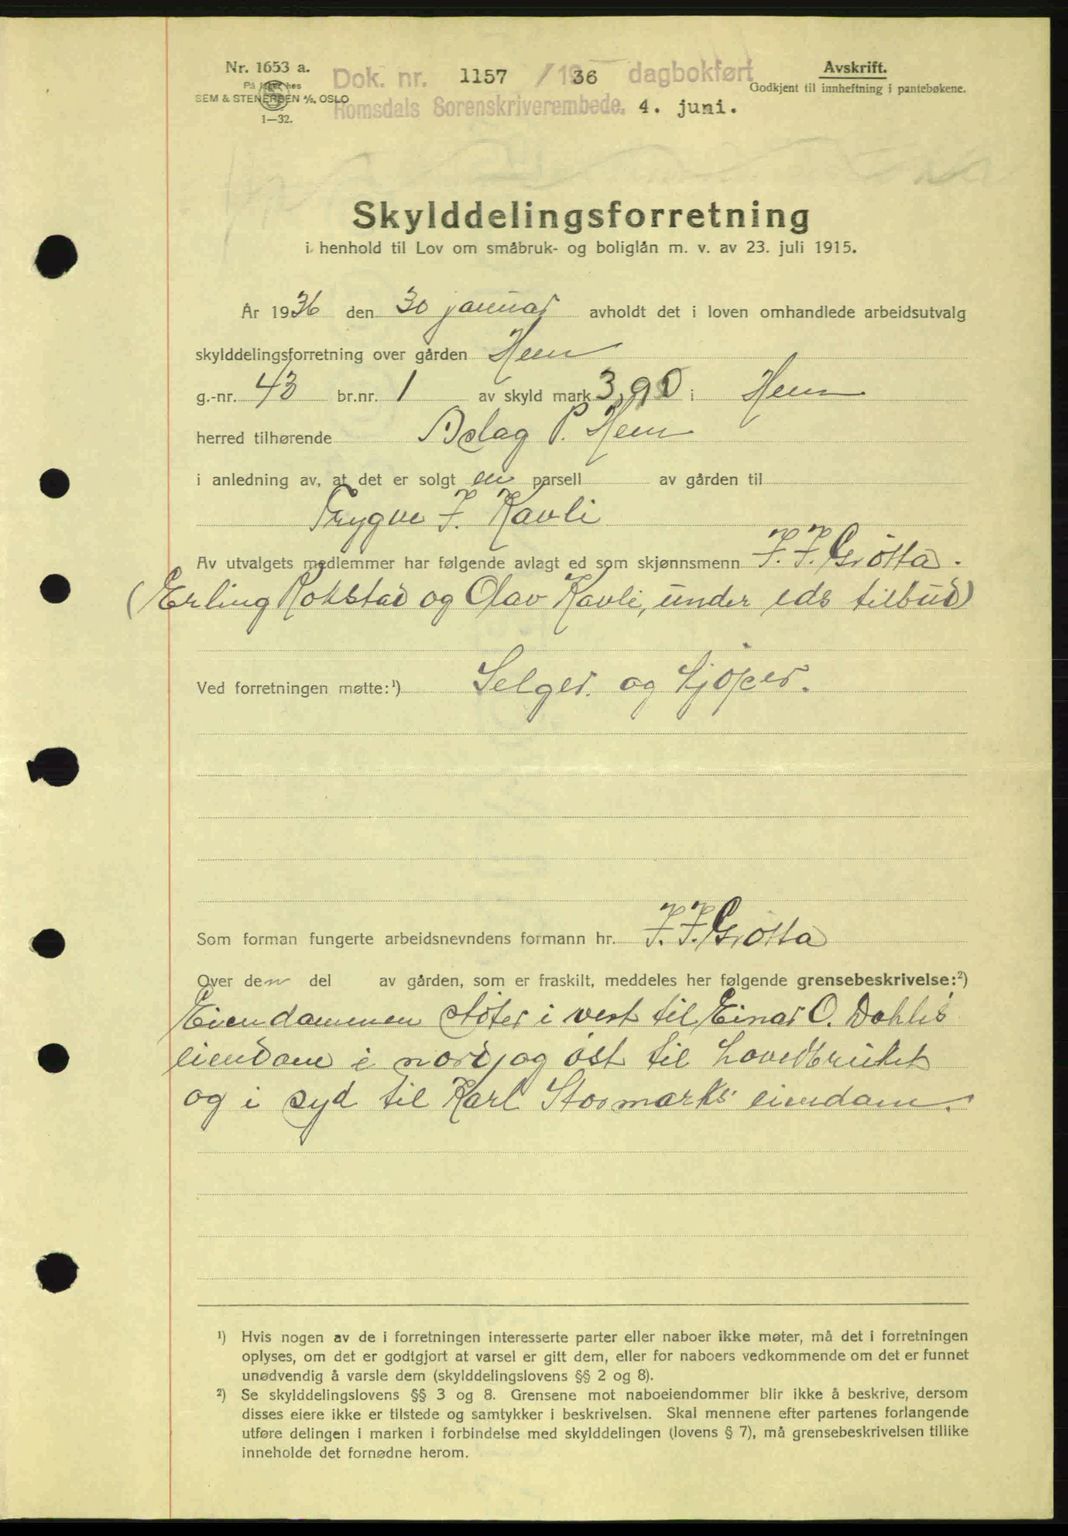 Nr. 1653 a.
På lager hos
SEM & STENERSEN A/S, OSLO
1—32.
Dok. nr. 1157 / 19 36 dagbokført
Romsdals Sorenskriverembede. 4. juni.
Avskrift.
Godkjent til innheftning i pantebøkene.
Skylddelingsforretning
i henhold til Lov om småbruk- og boliglån m. v. av 23. juli 1915.
År 1936 den 30 januar avholdt det i loven omhandlede arbeidsutvalg
skylddelingsforretning over gården Hem
g.-nr. 43 br.nr. 1 av skyld mark 3,90 i Hem
herred tilhørende Aslag P. Hem
i anledning av, at det er solgt en parsell av gården til
Trygve J. Kavli
Av utvalgets medlemmer har følgende avlagt ed som skjønnsmenn J. J. Grøtta.
(Erling Rokstad og Olav Kavli, under eds tilbud)
Ved forretningen møtte:¹) Selger og kjøper.
Som forman fungerte arbeidsnevndens formann hr. J. J. Grøtta
Over den del av gården, som er fraskilt, meddeles her følgende grensebeskrivelse:²)
Eiendommen støter i vest til Einar O. Dahls
eiendom i nord og øst til hovedbruket
og i syd til Karl Stormarks eiendom.
¹) Hvis nogen av de i forretningen interesserte parter eller naboer ikke møter, må det i forretningen
oplyses, om det er godtgjort at varsel er gitt dem, eller for naboers vedkommende om det er funnet
unødvendig å varsle dem (skylddelingslovens §§ 2 og 8).
²) Se skylddelingslovens §§ 3 og 8. Grensene mot naboeiendommer blir ikke å beskrive, dersom
disses eiere ikke er tilstede og samtykker i beskrivelsen. Skal mennene efter partenes forlangende
utføre delingen i marken i forbindelse med skylddelingen (lovens § 7), må grensebeskrivelsen tillike
inneholde det fornødne herom.